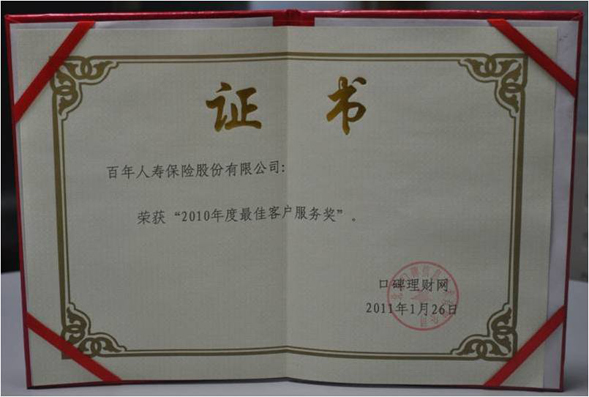 证 书
百年人寿保险股份有限公司:
荣获“2010年度最佳客户服务奖”。
口碑理财网
2011年1月26日